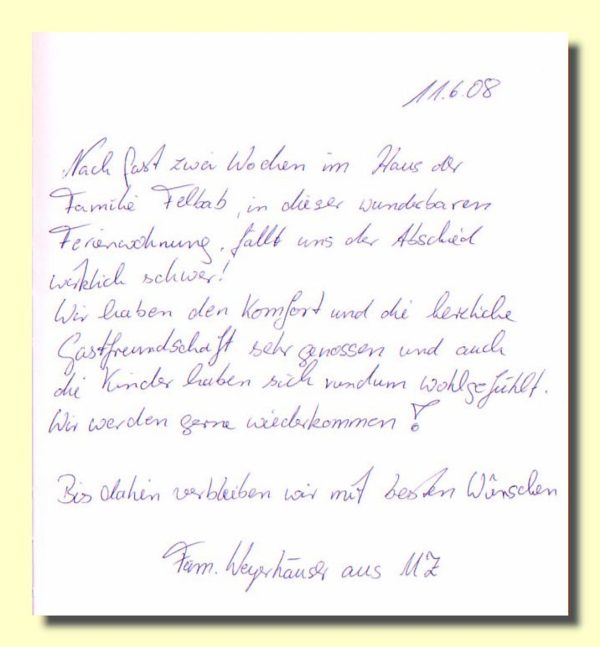 11.6.08
Nach fast zwei Wochen im Haus der
Familie Felbab, in dieser wunderbaren
Ferienwohnung, fällt uns der Abschied
wirklich schwer!
Wir haben den Komfort und die herzliche
Gastfreundschaft sehr genossen und auch
die Kinder haben sich rundum wohlgefühlt.
Wir werden gerne wiederkommen!
Bis dahin verbleiben wir mit besten Wünschen
Fam. Weyerhäuser aus MZ